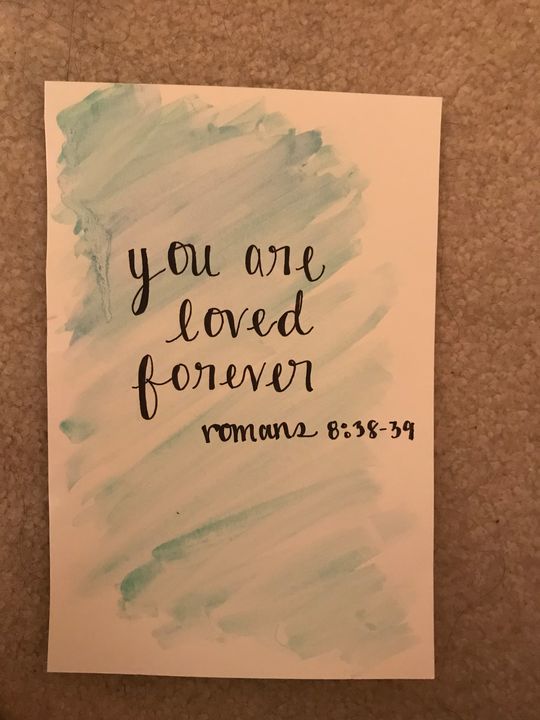 you are
loved
forever
romans 8:38-39